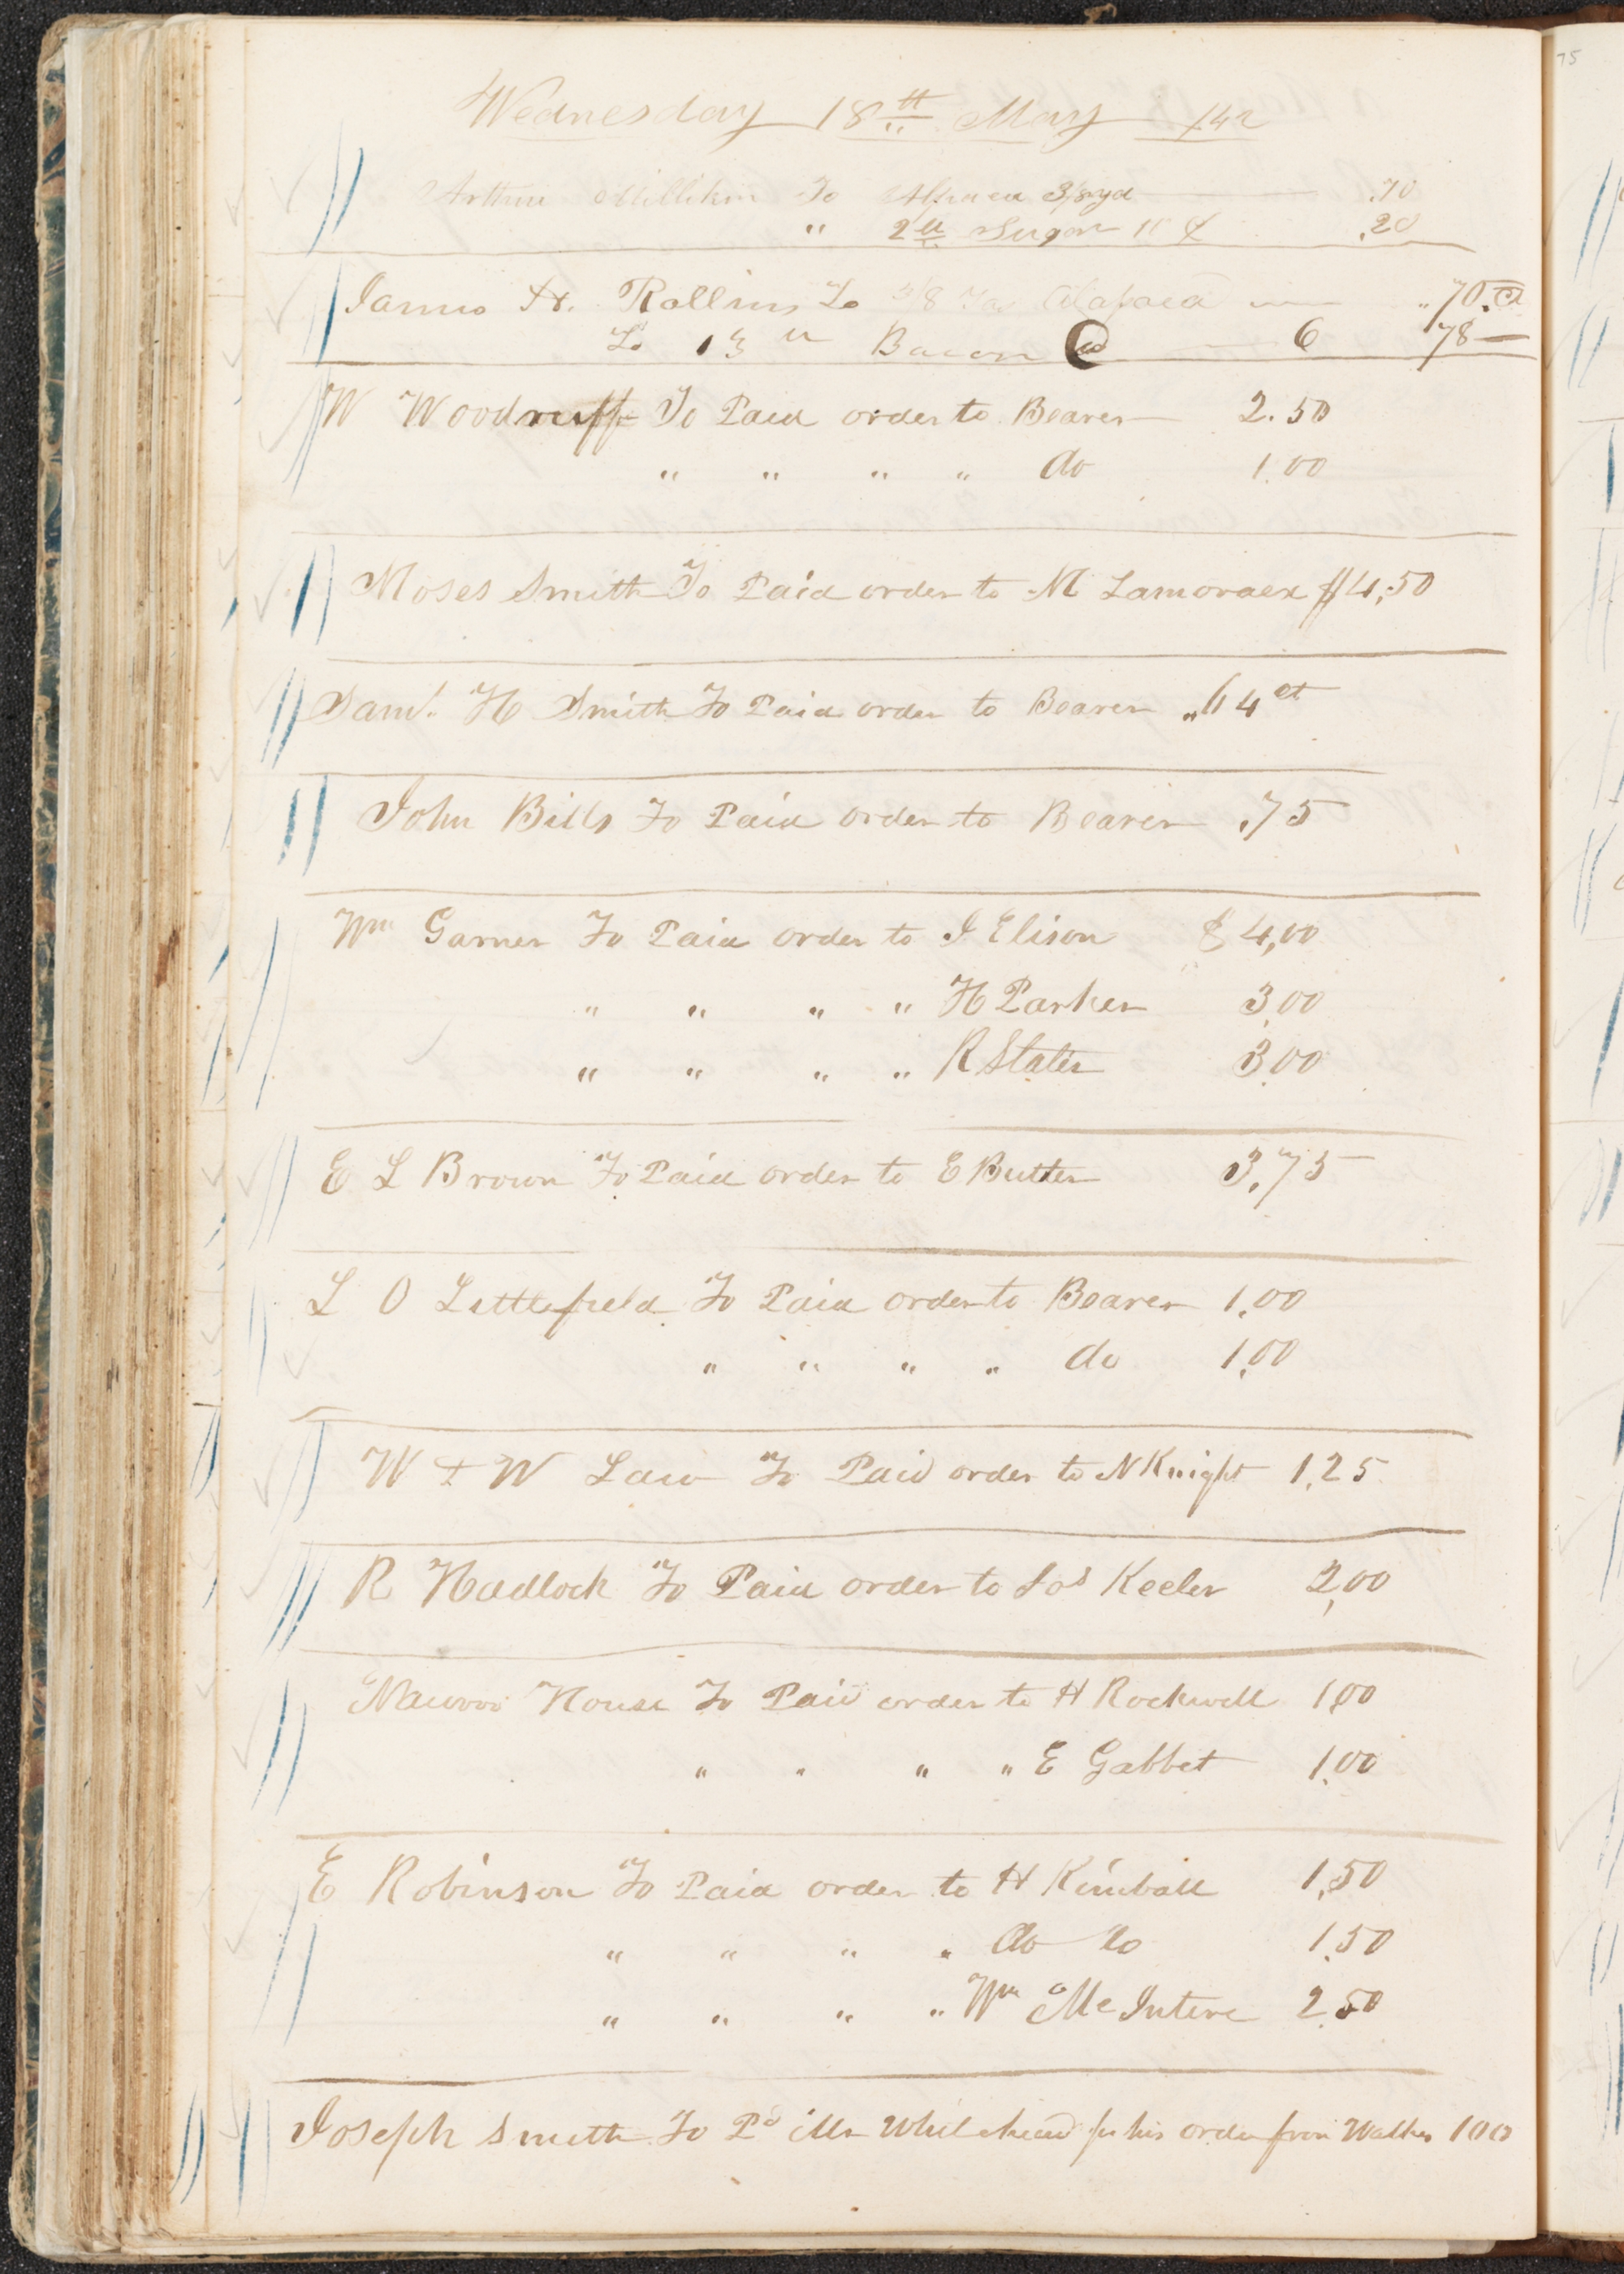 Wednesday 18th May /42
Arthur Millikin To Alpaca 3/8 yd .70
" 2 lb Sugar 10 ¢ .20
James H. Rollins To 3/8 Alapaca "70.ct
To 13 lb Bacon @ 6 78
W Woodruff To Paid order to Bearer 2.50
" " " " do 1.00
Moses Smith To Paid order to M Lamoraex $4,50
Saml. H Smith To Paid order to Bearer "64 ct
John Bills To Paid order to Bearer .75
Wm Garner To Paid order to J Elison $ 4,00
" " " " H Parker 3,00
" " " " R Slater 3,00
E L Brown To Paid order to E Butter 3,75
L O Littlefield To Paid order to Bearer 1,00
" " " " do 1,00
W & W Law To Paid order to N Knight 1,25
R Hadlock To Paid order to Jos Keeler 2,00
Nauvoo House To Paid order to H Rockwell 1,00
" " " " E Gabbet 1,00
E Robinson To Paid order to H Kimball 1,50
" " " " do do 1,50
" " " " Wm McIntire 2,50
Joseph Smith To Pd Mr Whitehead for his order from Walker 100
75